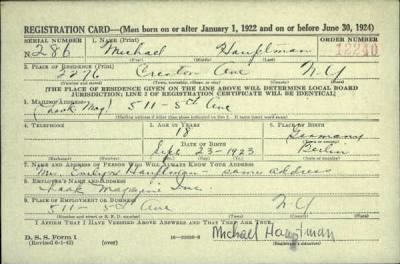 REGISTRATION CARD—(Men born on or after January 1, 1922 and on or before June 30, 1924)
SERIAL NUMBER 1. NAME (Print) ORDER NUMBER
N 286 Michael Hauptman 12240
(First) (Middle) (Last)
2. PLACE OF RESIDENCE (Print)
2276 Creston Ave N.Y
(Number and street) (Town, township, village, or city) (County) (State)
[THE PLACE OF RESIDENCE GIVEN ON THE LINE ABOVE WILL DETERMINE LOCAL BOARD
JURISDICTION; LINE 2 OF REGISTRATION CERTIFICATE WILL BE IDENTICAL]
3. MAILING ADDRESS
(Look Mag) 511-5th Ave
[Mailing address if other than place indicated on line 2. If same insert word same]
4. TELEPHONE 5. AGE IN YEARS 6. PLACE OF BIRTH
18 Germany
DATE OF BIRTH
Sept 23-1923 Berlin
7. NAME AND ADDRESS OF PERSON WHO WILL ALWAYS KNOW YOUR ADDRESS
Hauptman - same address
8. EMPLOYER'S NAME AND ADDRESS
Look Magazine Inc.
9. PLACE OF EMPLOYMENT OR BUSINESS
511-5th Ave N.Y
(Number and street or R. F. D. number) (Town) (County) (State)
I AFFIRM THAT I HAVE VERIFIED ABOVE ANSWERS AND THAT THEY ARE TRUE.
D. S. S. Form 1
(Revised 6-1-42)
Michael Hauptman